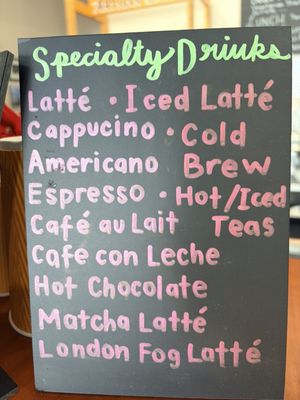 Specialty Drinks
Latté • Iced Latté
Cappucino • Cold
Americano Brew
Espresso • Hot/Iced
Café au Lait Teas
Cafe con Leche
Hot Chocolate
Matcha Latté
London Fog Latté